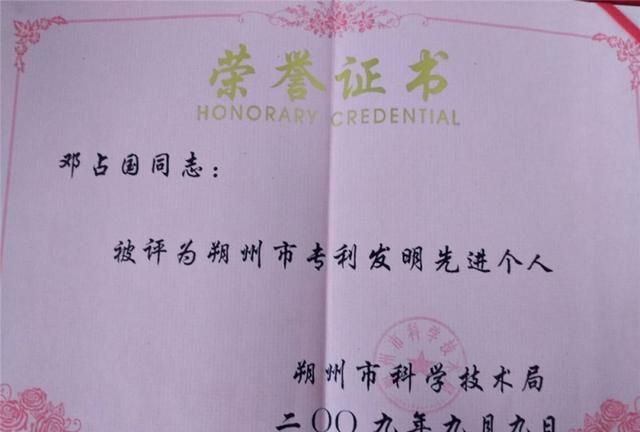 荣誉证书
HONORARY CREDENTIAL
邓占国同志：
被评为朔州市专利发明先进个人
朔州市科学技术局
朔州市科学技术局
二〇〇九年九月九日